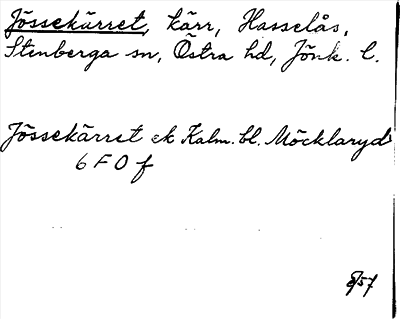 Jössekärret, kärr, Hasselås,
Stenberga sn, Östra hd, Jönk. l.
Jössekärret ek Kalm. bl. Möcklaryd
6 F 0 f
/57